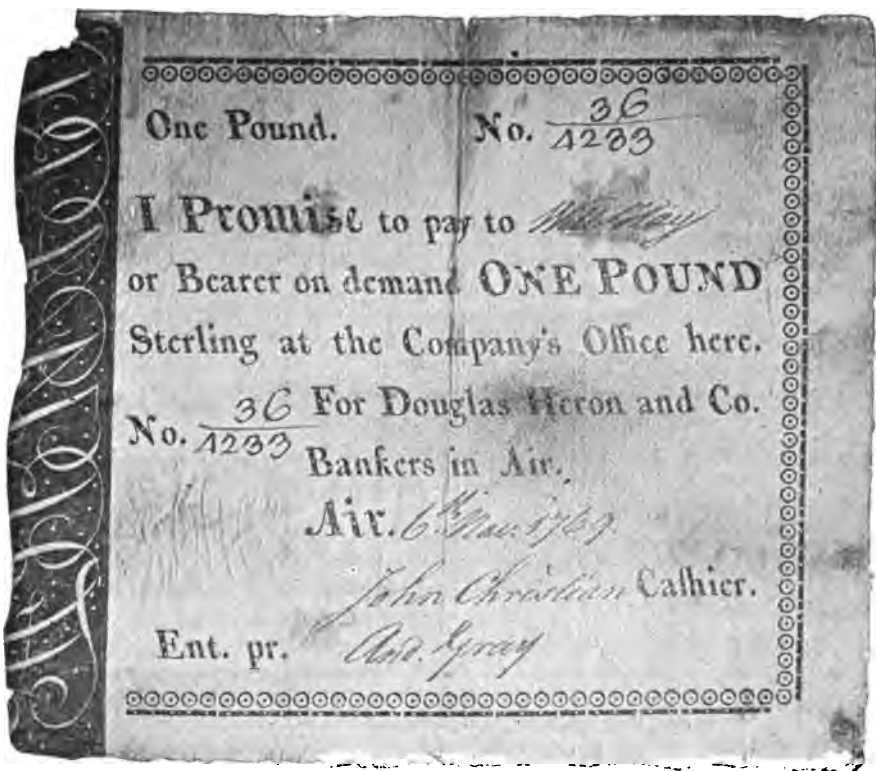 One Pound. No. 36/1233
I Promise to pay to
or Bearer on demand ONE POUND
Sterling at the Company's Office here.
No. 36/1233 For Douglas Heron and Co.
Bankers in Air.
Air. 6th Nov. 1769
John Christian Caſhier.
Ent. pr. And. Gray